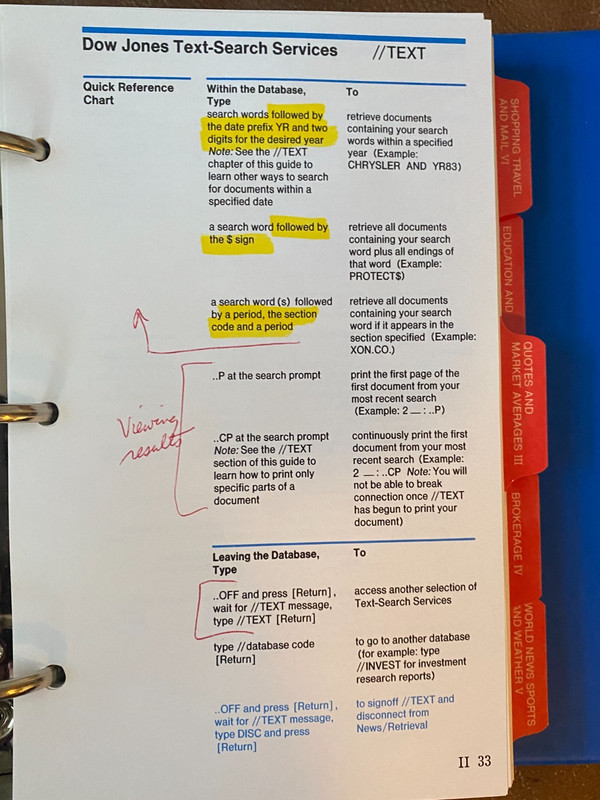 Dow Jones Text-Search Services //TEXT
Quick Reference
Chart
Within the Database,
Type
To
search words followed by
the date prefix YR and two
digits for the desired year
Note: See the //TEXT
chapter of this guide to
learn other ways to search
for documents within a
specified date
retrieve documents
containing your search
words within a specified
year (Example:
CHRYSLER AND YR83)
a search word followed by
the $ sign
retrieve all documents
containing your search
word plus all endings of
that word (Example:
PROTECT$)
a search word(s) followed
by a period, the section
code and a period
retrieve all documents
containing your search
word if it appears in the
section specified (Example:
XON.CO.)
Viewing
results
..P at the search prompt
print the first page of the
first document from your
most recent search
(Example: 2 —:..P)
..CP at the search prompt
Note: See the //TEXT
section of this guide to
learn how to print only
specific parts of a
document
continuously print the first
document from your most
recent search (Example:
2 —:..CP Note: You will
not be able to break
connection once //TEXT
has begun to print your
document)
Leaving the Database,
Type
To
..OFF and press [Return],
wait for //TEXT message,
type //TEXT [Return]
access another selection of
Text-Search Services
type //database code
[Return]
to go to another database
(for example: type
//INVEST for investment
research reports)
..OFF and press [Return],
wait for //TEXT message,
type DISC and press
[Return]
to signoff //TEXT and
disconnect from
News/Retrieval
II 33
SHOPPING TRAVEL
AND MAIL VI
EDUCATION AND
QUOTES AND
MARKET AVERAGES III
BROKERAGE IV
WORLD NEWS SPORTS
AND WEATHER V